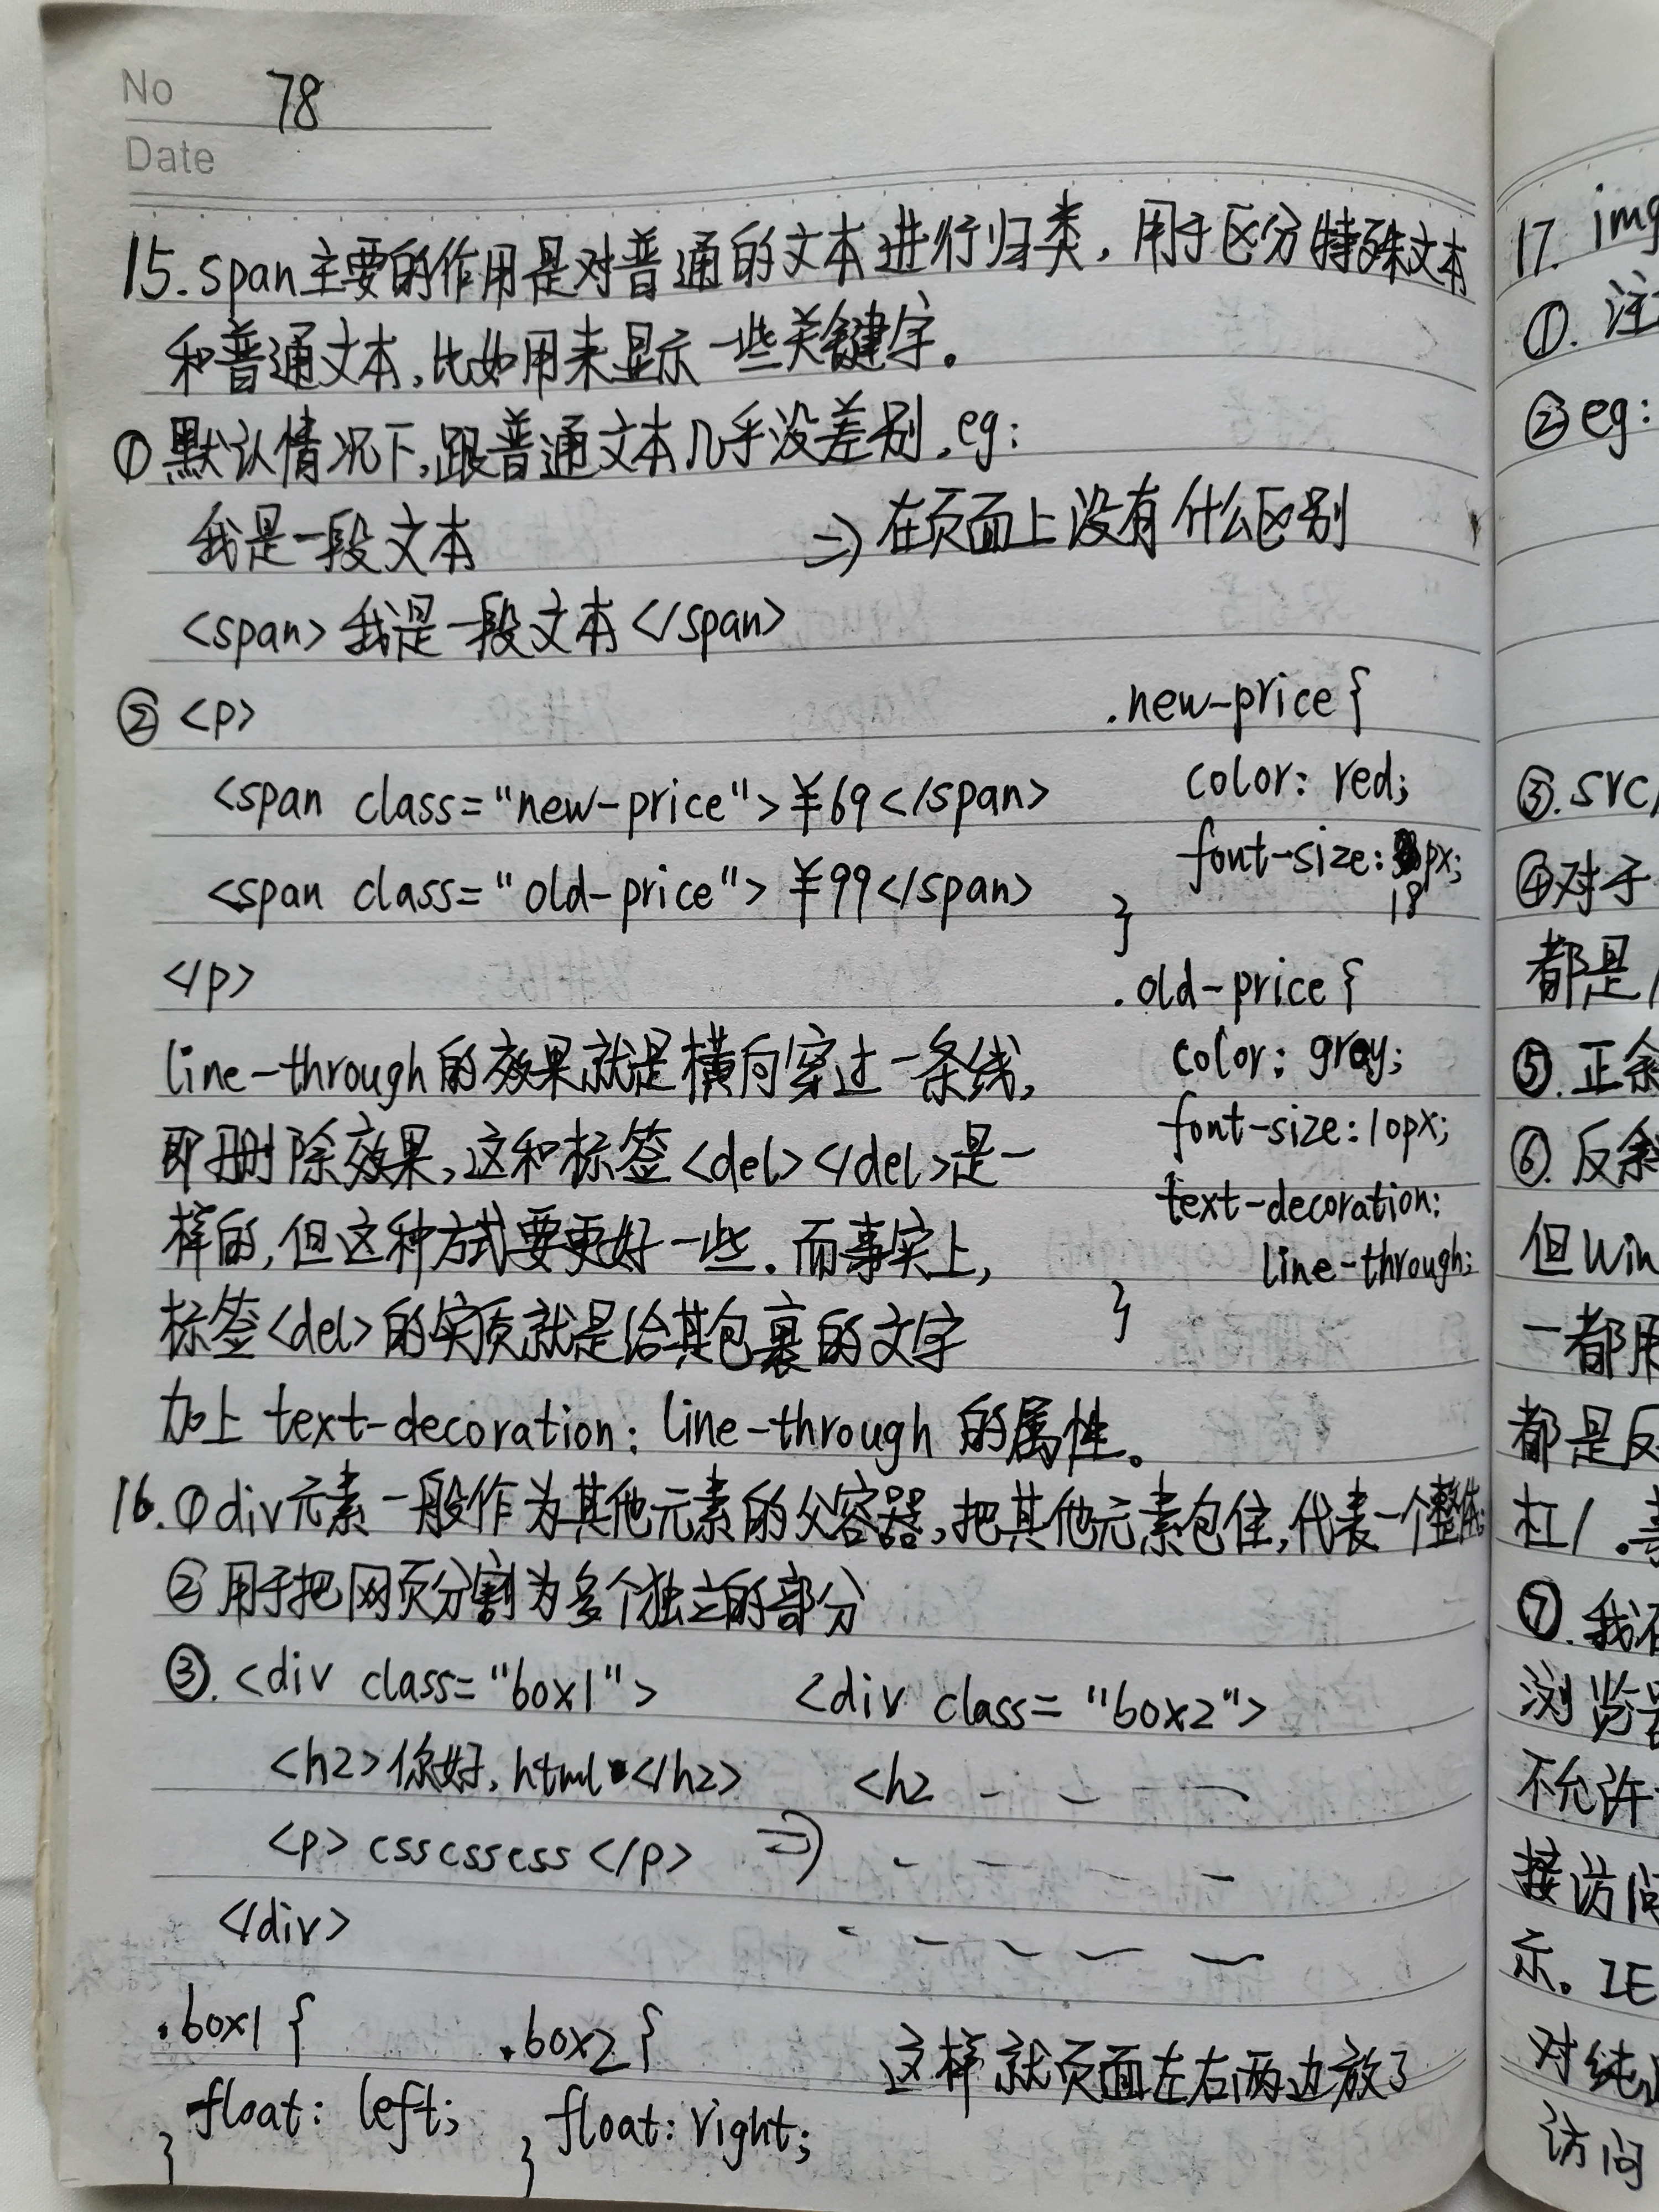 No 78
Date
15. span主要的作用是对普通的文本进行归类，用于区分特殊文本
和普通文本，比如用来显示一些关键字。
① 默认情况下，跟普通文本几乎没差别，eg：
我是一段文本 => 在页面上没有什么区别
<span>我是一段文本</span>
② <p>
<span class="new-price">￥69</span>
<span class="old-price">￥99</span>
</p>
.new-price {
color: red;
font-size: 18px;
}
.old-price {
color: gray;
font-size: 10px;
text-decoration:
line-through;
}
line-through的效果就是横向穿过一条线，
即删除效果，这和标签<del></del>是一
样的，但这种方式要更好一些．而事实上，
标签<del>的实质就是给其包裹的文字
加上 text-decoration: line-through 的属性。
16. ① div元素一般作为其他元素的父容器，把其他元素包住，代表一个整体；
② 用于把网页分割为多个独立的部分
③. <div class="box1"> <div class="box2">
<h2>你好，html</h2> <h2
<p>csscsscss</p> =>
</div>
.box1 { .box2 {
float: left; float: right;
} }
这样就页面左右两边放了
17. img
①. 注
② eg:
③. src
④ 对于
都是
⑤. 正
⑥. 反
但win
一都用
都是反
杠/.
⑦. 我
浏览
不允许
接访问
示。IE
对纯
访问